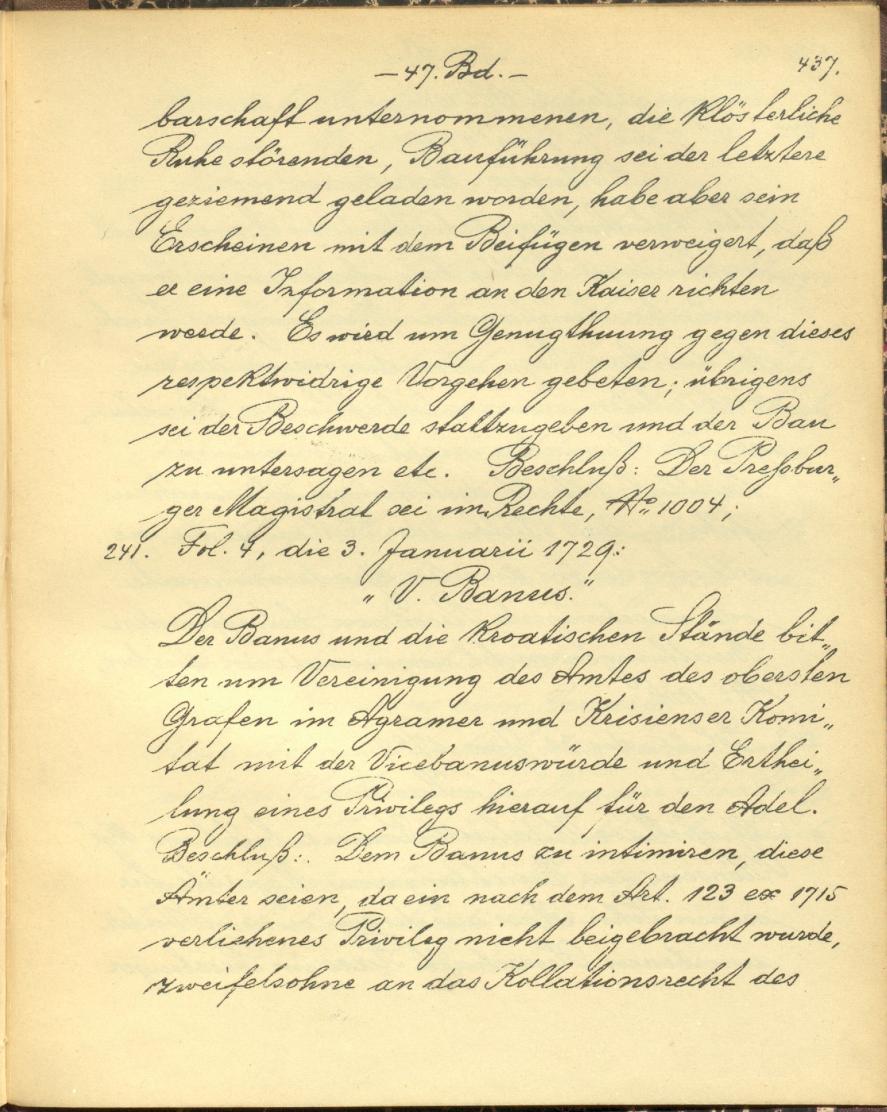 — 47. Bd. —
437.
barschaft unternommenen, die klösterliche
Ruhe störenden, Bauführung sei der letztere
geziemend geladen worden, habe aber sein
Erscheinen mit dem Beifügen verweigert, daß
er eine Information an den Kaiser richten
werde. Es wird um Genugthuung gegen dieses
respektwidrige Vorgehen gebeten; übrigens
sei der Beschwerde stattzugeben und der Bau
zu untersagen etc. Beschluß: Der Preßbur„
ger Magistrat sei im Rechte, No. 1004;
241. Fol. 4, die 3. Januarii 1729:
„V. Banus.“
Der Banus und die Kroatischen Stände bit„
ten um Vereinigung des Amtes des obersten
Grafen im Agramer und Krisienser Komi„
tat mit der Vicebanuswürde und Erthei„
lung eines Privilegs hierauf für den Adel.
Beschluß:. Dem Banus zu intimiren, diese
Ämter seien, da ein nach dem Art. 123 ex 1715
verliehenes Privileg nicht beigebracht wurde,
zweifelsohne an das Kollationsrecht des